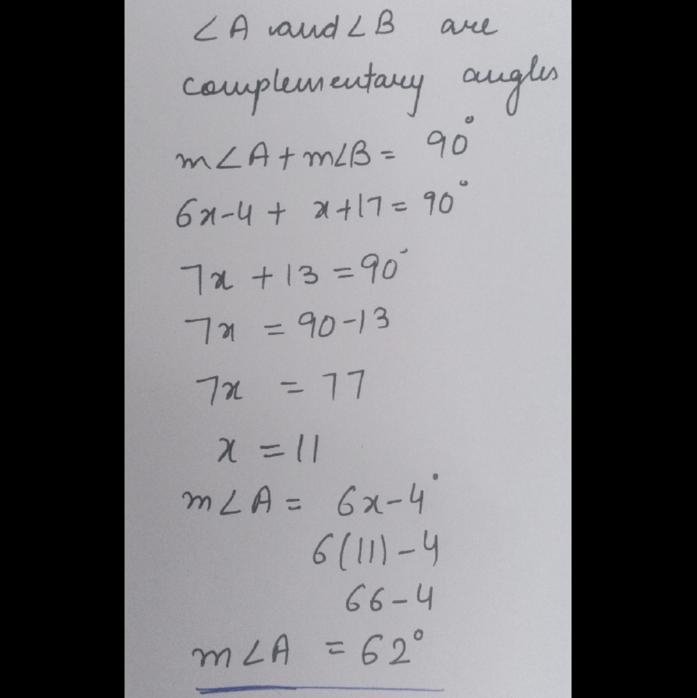 ∠A and ∠B are
complementary angles
m∠A + m∠B = 90°
6x-4 + x+17 = 90°
7x + 13 = 90°
7x = 90-13
7x = 77
x = 11
m∠A = 6x-4°
6(11) -4
66-4
m∠A = 62°